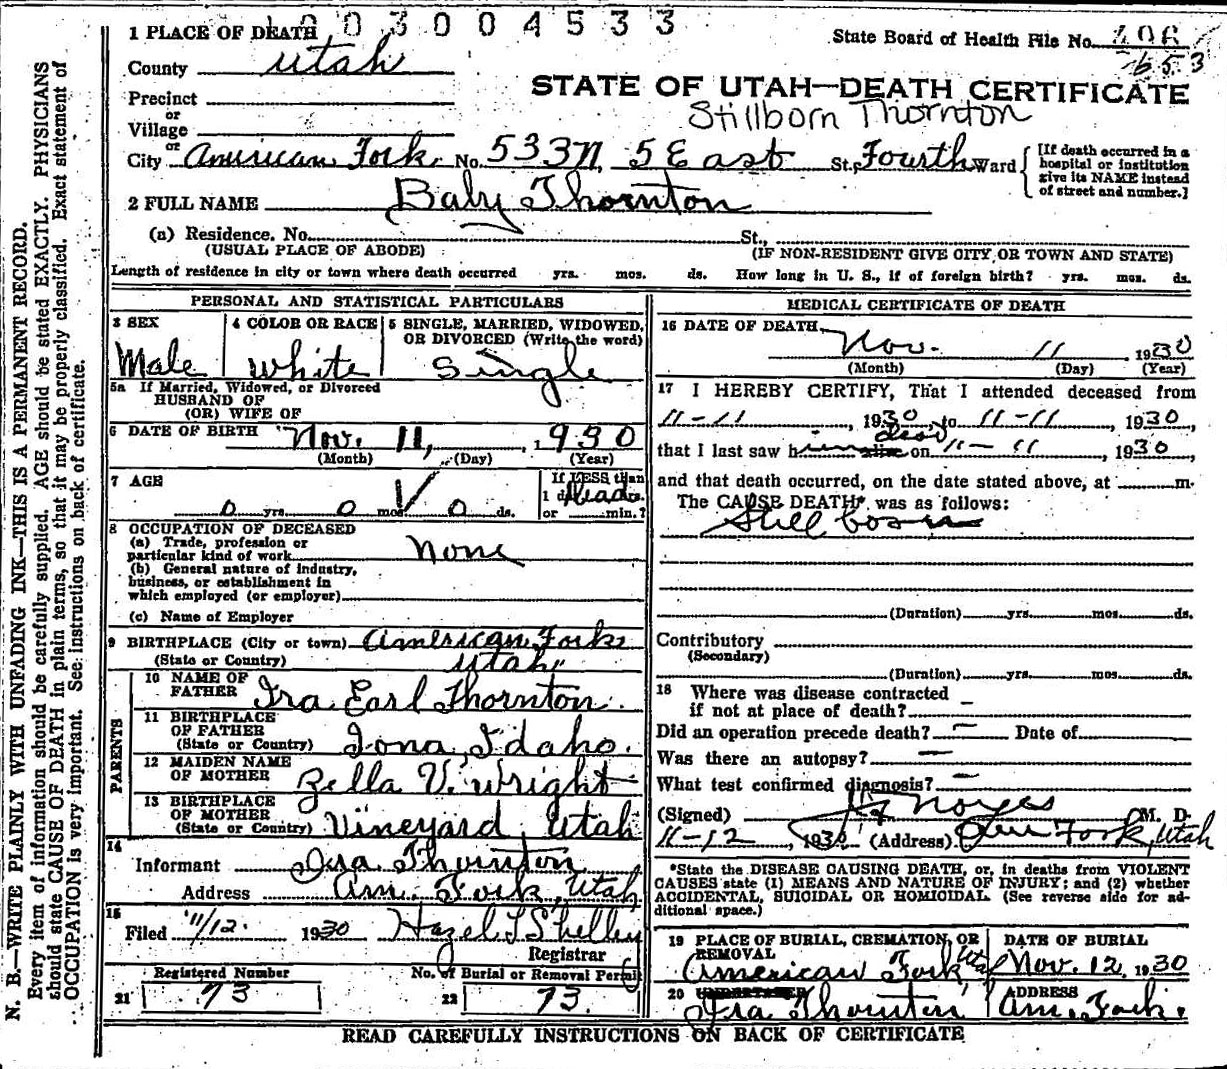 003004533
1 PLACE OF DEATH
State Board of Health File No.
County Utah
653
STATE OF UTAH—DEATH CERTIFICATE
Precinct
or
Stillborn Thornton
Village
or
City American Fork. No. 533 N, 5 East St., Fourth Ward
[If death occurred in a hospital or institution give its NAME instead of street and number.]
2 FULL NAME Baby Thornton
(a) Residence. No. St.,
(USUAL PLACE OF ABODE) (IF NON-RESIDENT GIVE CITY OR TOWN AND STATE)
Length of residence in city or town where death occurred yrs. mos. ds. How long in U. S., if of foreign birth? yrs. mos. ds.
PERSONAL AND STATISTICAL PARTICULARS
3 SEX 4 COLOR OR RACE 5 SINGLE, MARRIED, WIDOWED,
OR DIVORCED (Write the word)
Male White Single
5a If Married, Widowed, or Divorced
HUSBAND OF
(OR) WIFE OF
6 DATE OF BIRTH Nov. 11, 1930
(Month) (Day) (Year)
7 AGE If LESS than
0 yrs. 0 mos. 0 ds. 1 d
or min.?
8 OCCUPATION OF DECEASED
(a) Trade, profession or
particular kind of work None
(b) General nature of industry,
business, or establishment in
which employed (or employer)
(c) Name of Employer
9 BIRTHPLACE (City or town) American Fork
(State or Country) Utah
PARENTS
10 NAME OF
FATHER Ira Earl Thornton.
11 BIRTHPLACE
OF FATHER
(State or Country) Iona, Idaho.
12 MAIDEN NAME
OF MOTHER Zella V. Wright
13 BIRTHPLACE
OF MOTHER
(State or Country) Vineyard, Utah
14
Informant Ira Thornton
Address Am. Fork, Utah
15
Filed 11/12. 1930 Hazel L Shelley
Registrar
Registered Number No. of Burial or Removal Permit
21 73 22 73.
MEDICAL CERTIFICATE OF DEATH
16 DATE OF DEATH
Nov. 11, 1930
(Month) (Day) (Year)
17 I HEREBY CERTIFY, That I attended deceased from
11-11, 1930, to 11-11, 1930,
dead
that I last saw him alive on 11-11, 1930,
and that death occurred, on the date stated above, at m.
The CAUSE DEATH* was as follows:
Still born
(Duration) yrs. mos. ds.
Contributory
(Secondary)
(Duration) yrs. mos. ds.
18 Where was disease contracted
if not at place of death? –
Did an operation precede death? – Date of
Was there an autopsy? –
What test confirmed diagnosis? –
(Signed) Noyes M. D.
11-12, 1930. (Address) Am Fork, Utah
*State the DISEASE CAUSING DEATH, or, in deaths from VIOLENT
CAUSES state (1) MEANS AND NATURE OF INJURY; and (2) whether
ACCIDENTAL, SUICIDAL OR HOMICIDAL. (See reverse side for ad-
ditional space.)
19 PLACE OF BURIAL, CREMATION, OR DATE OF BURIAL
REMOVAL
American Fork, Utah Nov. 12, 1930
20 UNDERTAKER ADDRESS
Ira Thornton Am. Fork.
READ CAREFULLY INSTRUCTIONS ON BACK OF CERTIFICATE
N. B.—WRITE PLAINLY WITH UNFADING INK—THIS IS A PERMANENT RECORD.
Every item of information should be carefully supplied. AGE should be stated EXACTLY. PHYSICIANS
should state CAUSE OF DEATH in plain terms, so that it may be properly classified. Exact statement of
OCCUPATION is very important. See instructions on back of certificate.